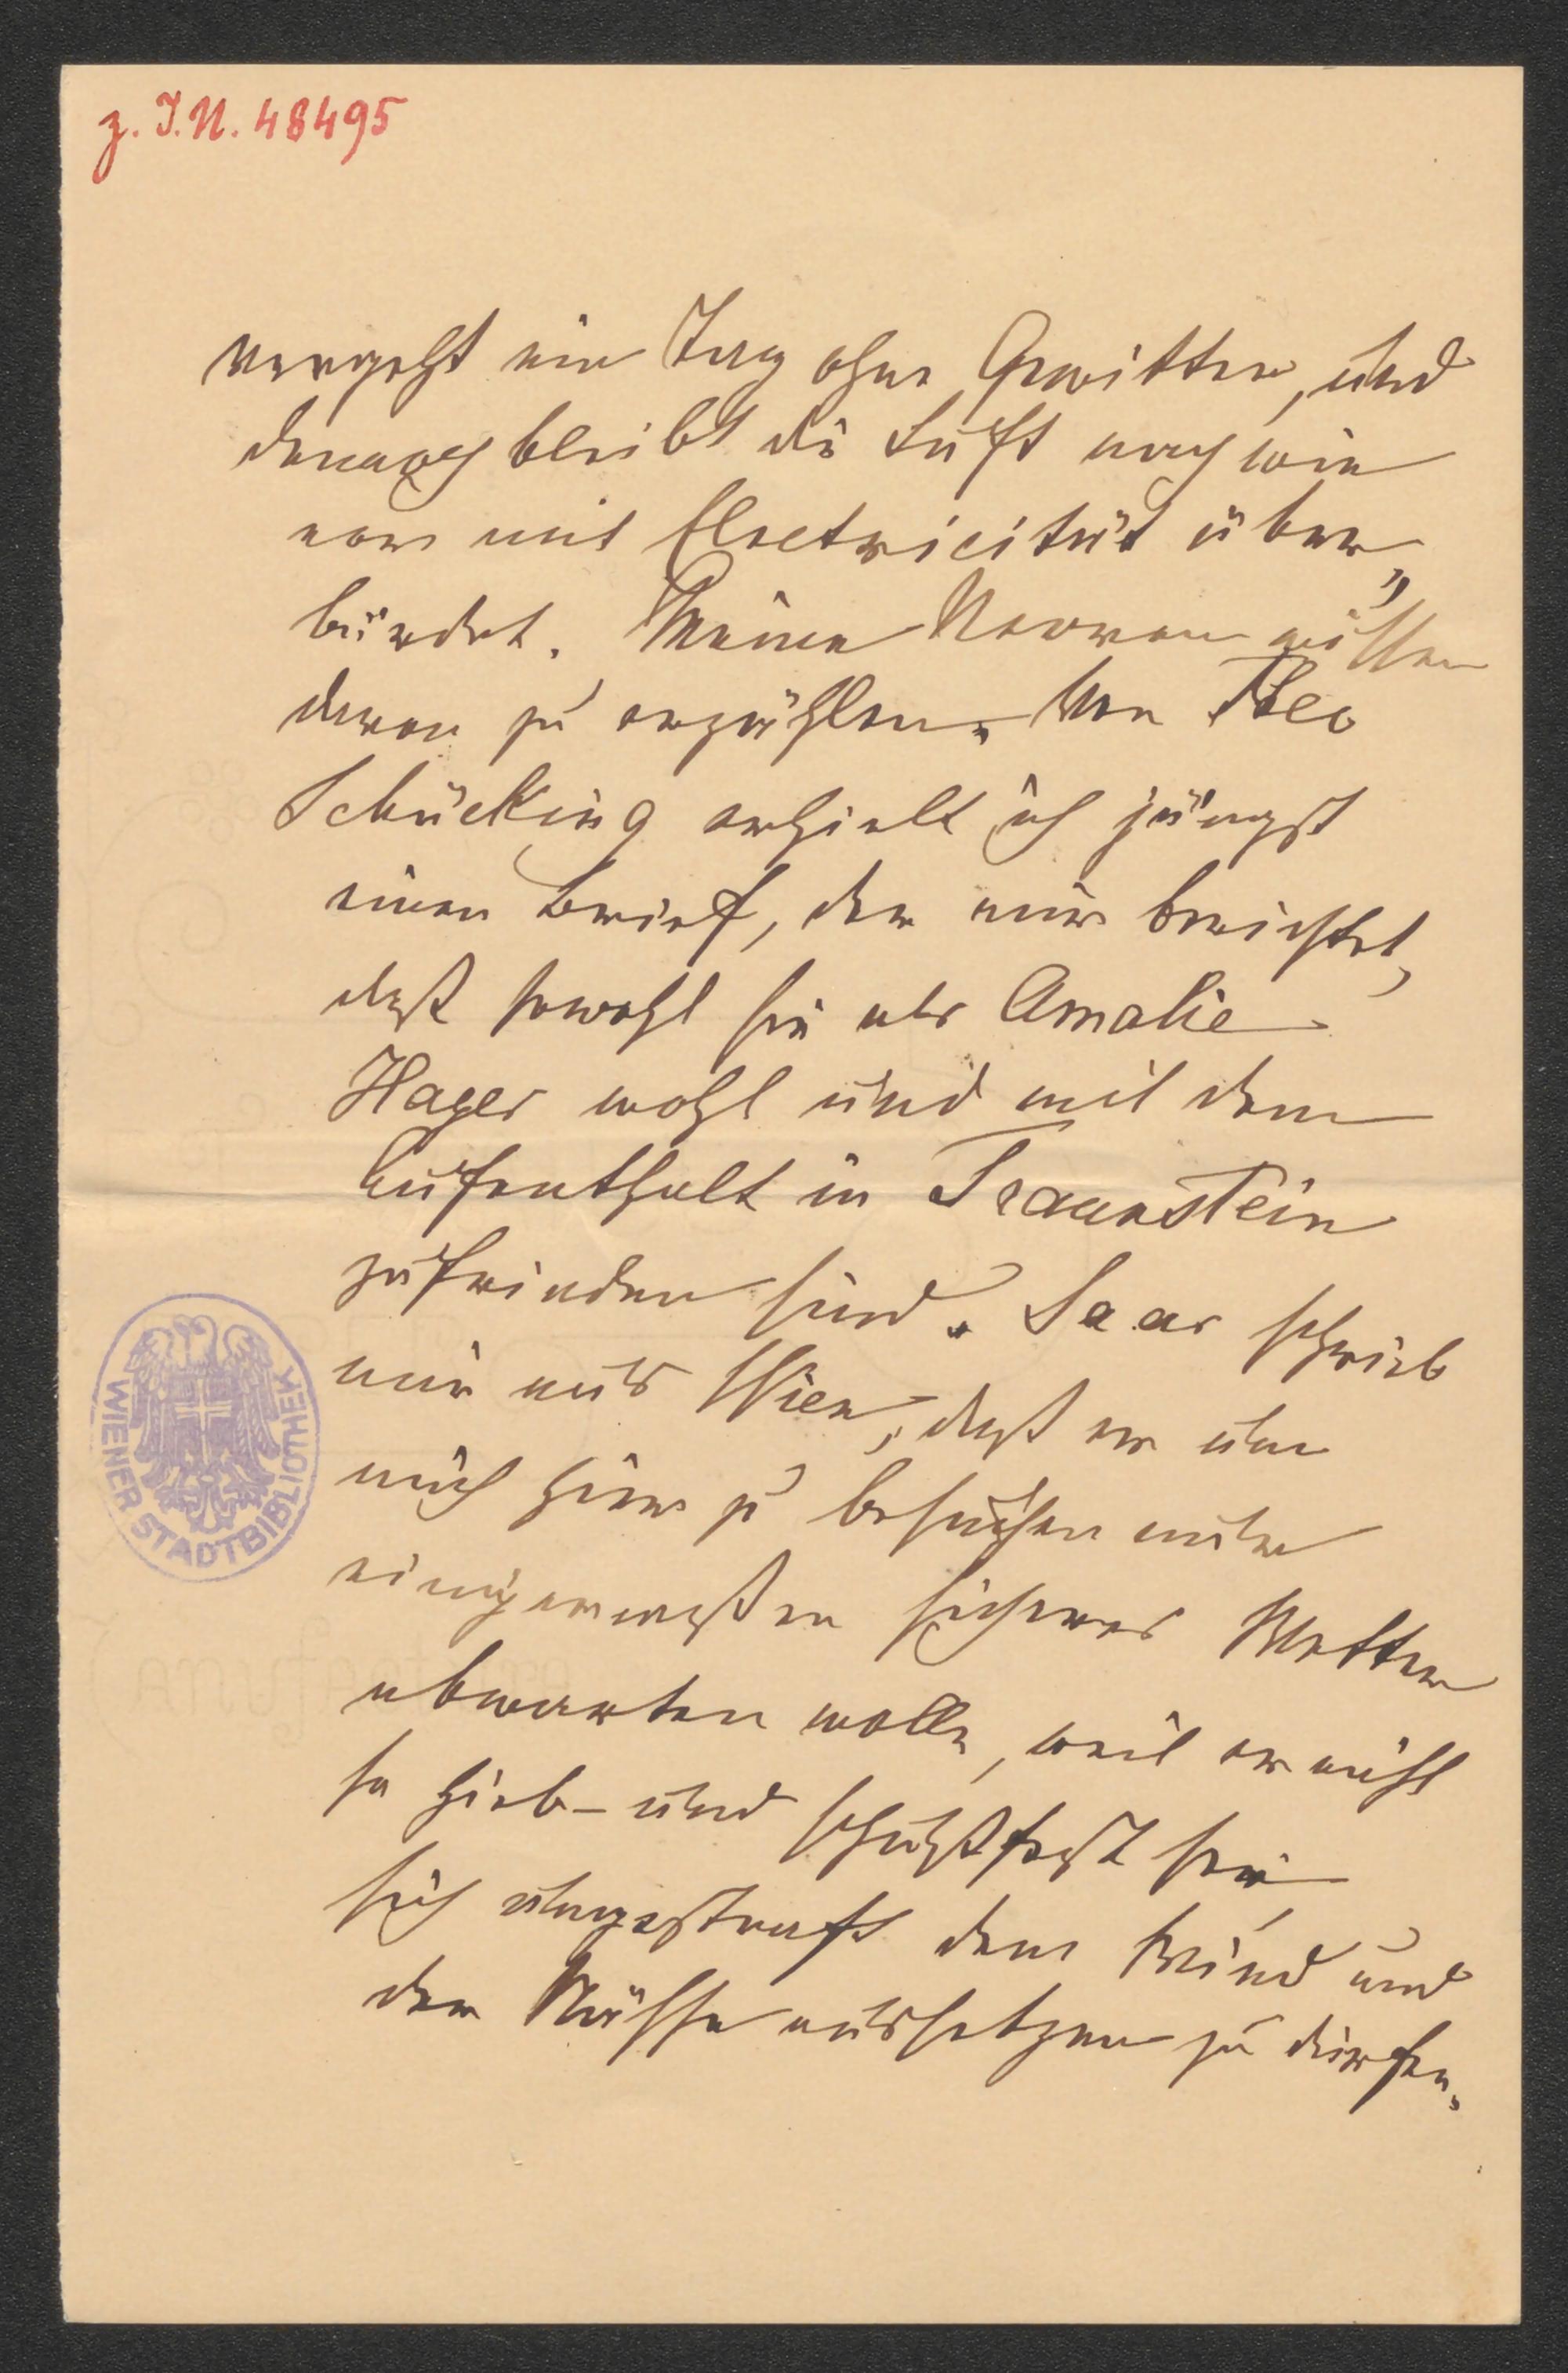 z. I.N. 48495
vergeht ein Tag ohne Gewitter, und
dennoch bleibt die Luft nach wie
vor mit Electricität über„
bürdet. Meine Nerven wissen
davon zu erzählen. Von Theo
Schücking erhielt ich jüngst
einen Brief, der mir berichtet,
daß sowohl sie als Amalie
Hager wohl und mit dem
Aufenthalt in Traunstein
zufrieden sind. Saar schrieb
mir aus Wien, daß er um
mich hier zu besuchen nur
einigermaßen sicheres Wetter
abwarten wolle, weil er nicht
so hieb- und schußfest sei
sich ungestraft dem Wind und
der Nässe aussetzen zu dürfen.
WIENER STADTBIBLIOTHEK